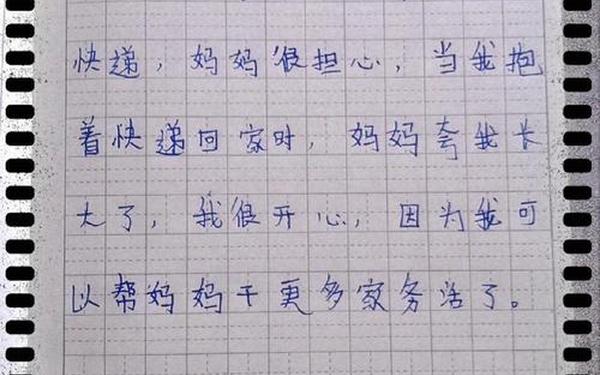 快递，妈妈很担心，当我抱
着快递回家时，妈妈夸我长
大了，我很开心，因为我可
以帮妈妈干更多家务活了。